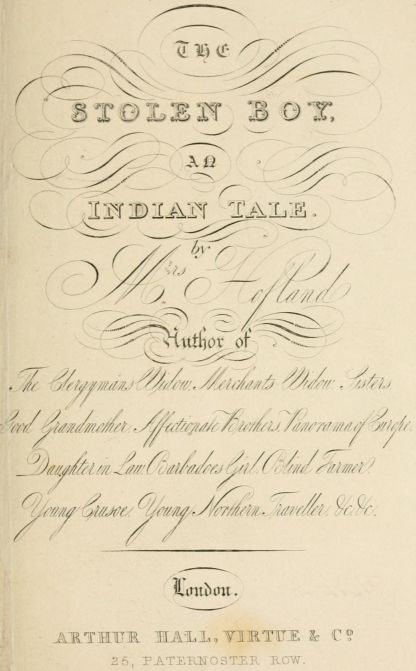 THE
STOLEN BOY,
AN
INDIAN TALE.
by
Mrs. Hofland
Author of
The Clergymans Widow, Merchants Widow, Sisters
Good Grandmother, Affectionate Brothers, Panorama of Europe.
Daughter in Law, Barbadoes Girl, Blind Farmer.
Young Crusoe, Young Northern Traveller, &c. &c.
London.
ARTHUR HALL, VIRTUE & Co.
25, PATERNOSTER ROW.